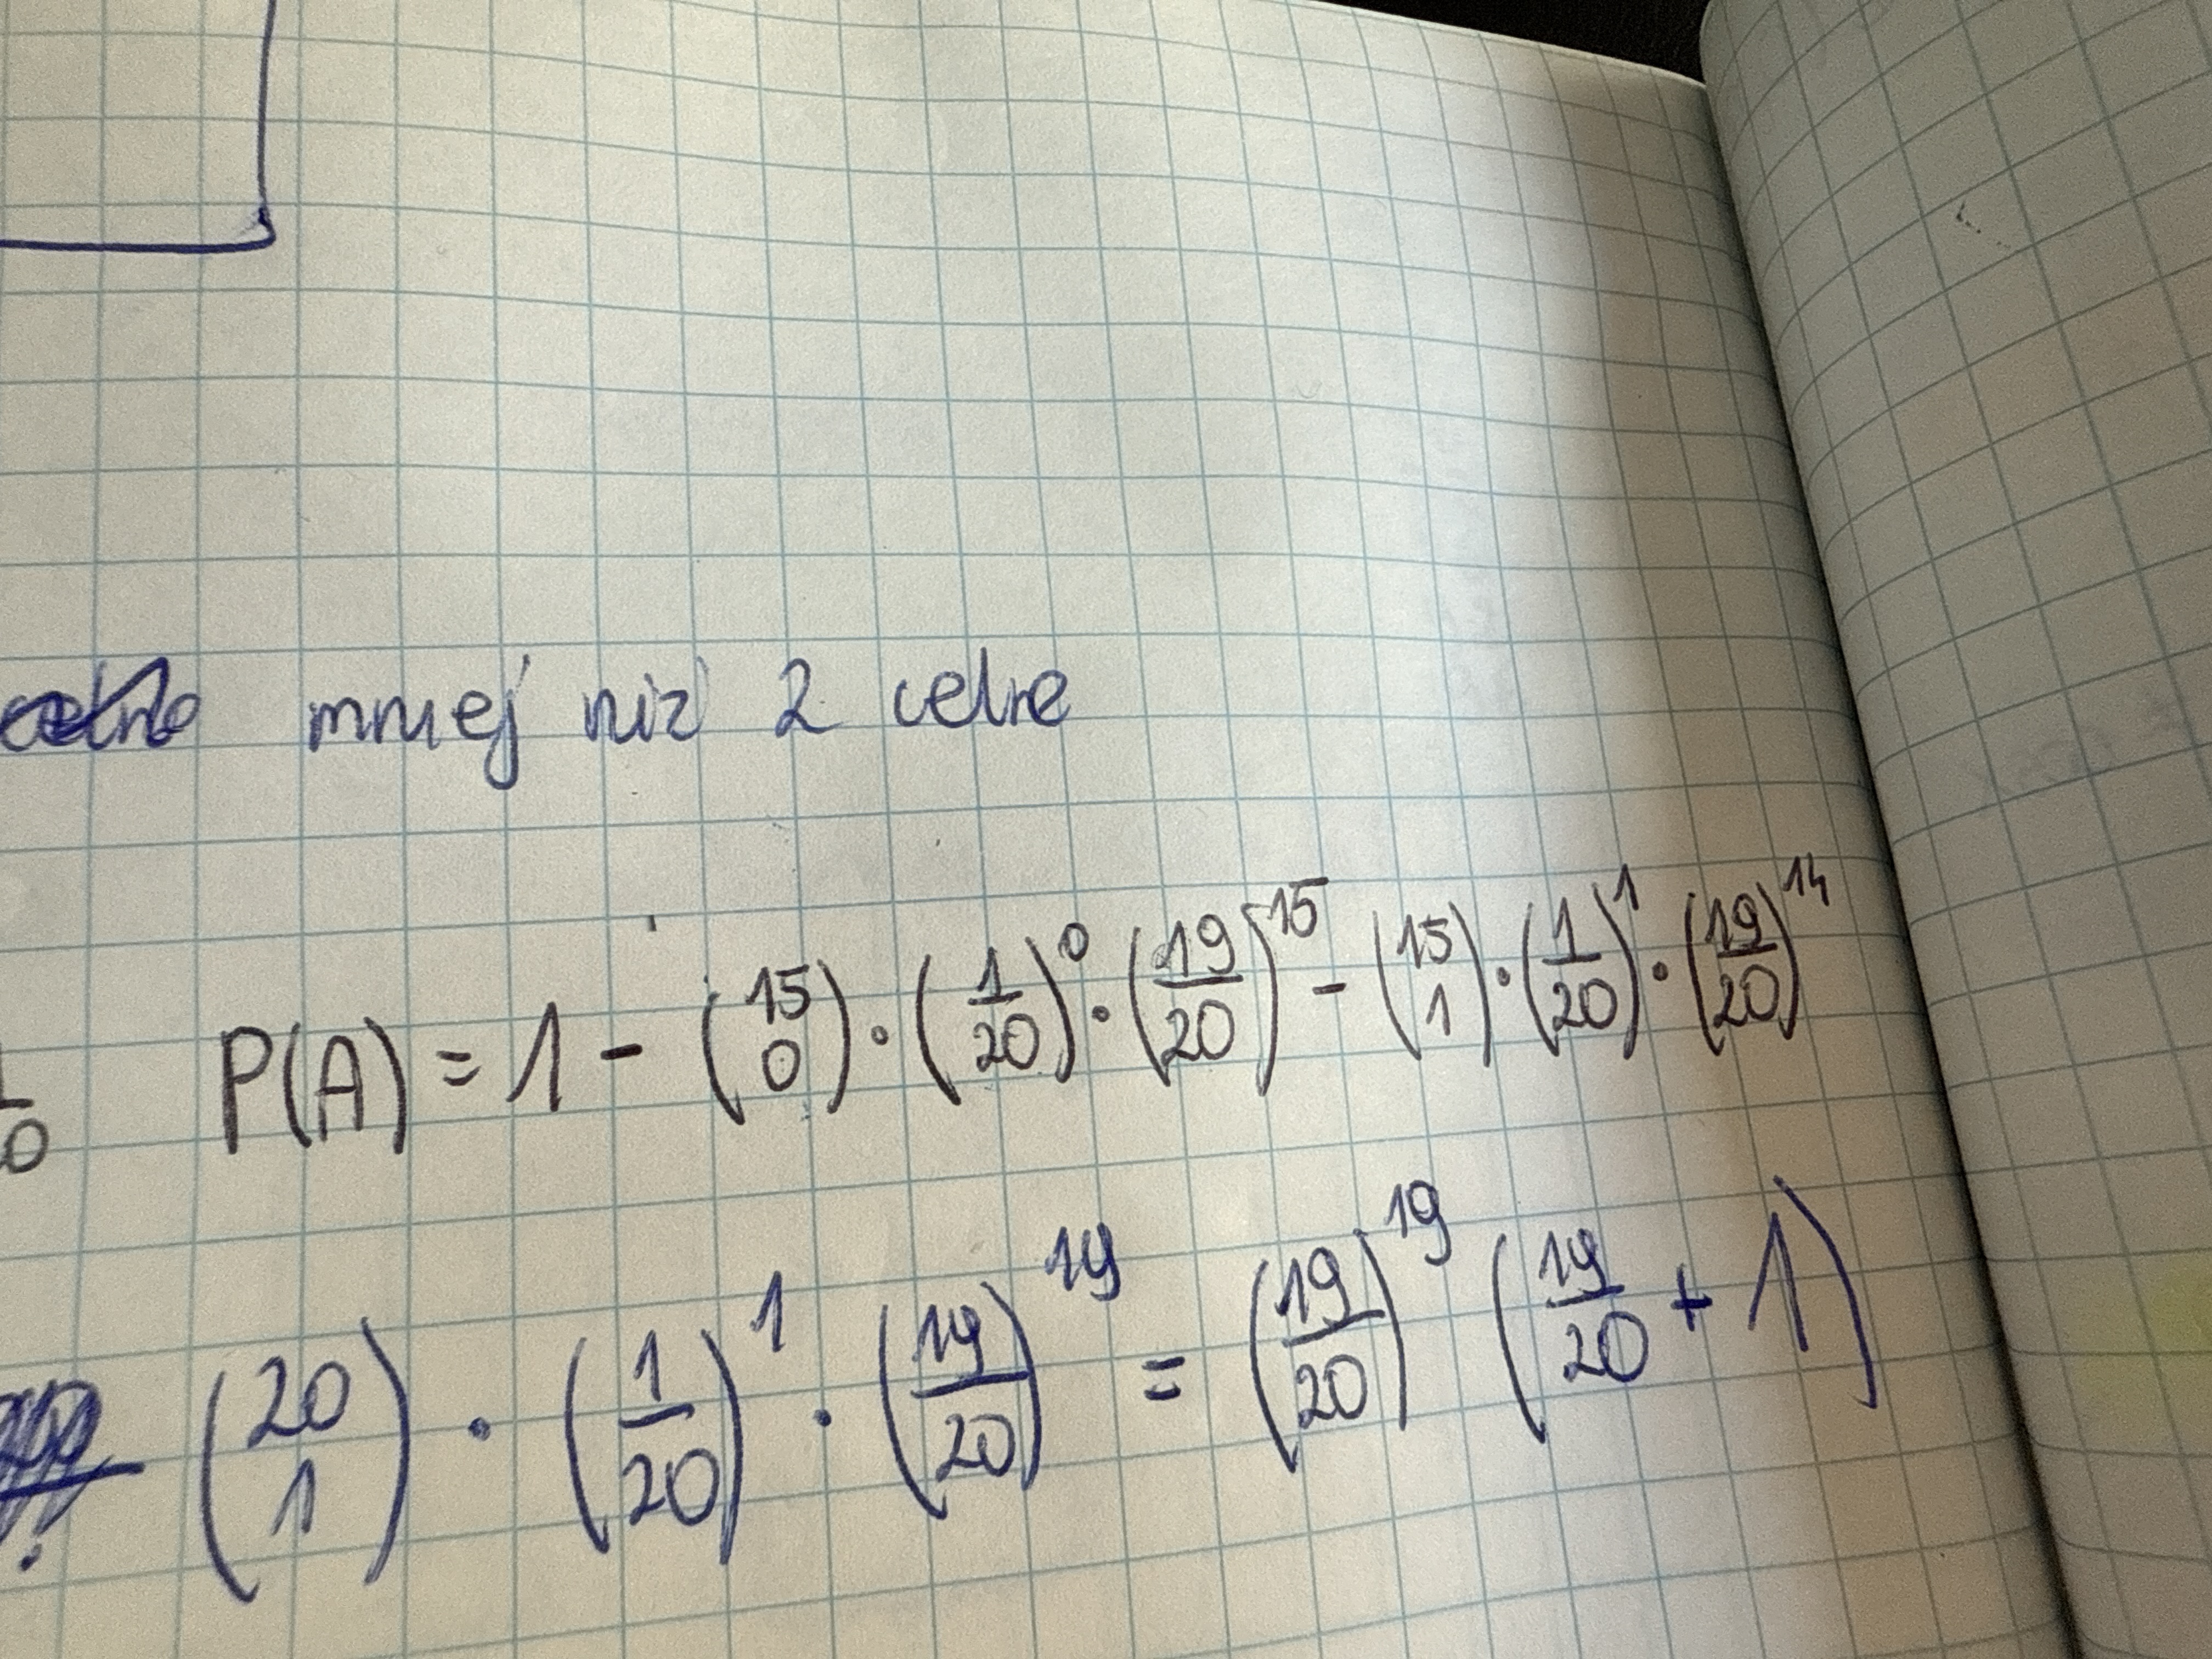 mniej niż 2 celne
P(A) = 1 - (15 0) · (1/20)^0 · (19/20)^15 - (15 1) · (1/20)^1 · (19/20)^14
(20 1) · (1/20)^1 · (19/20)^19 = (19/20)^19 (19/20 + 1)